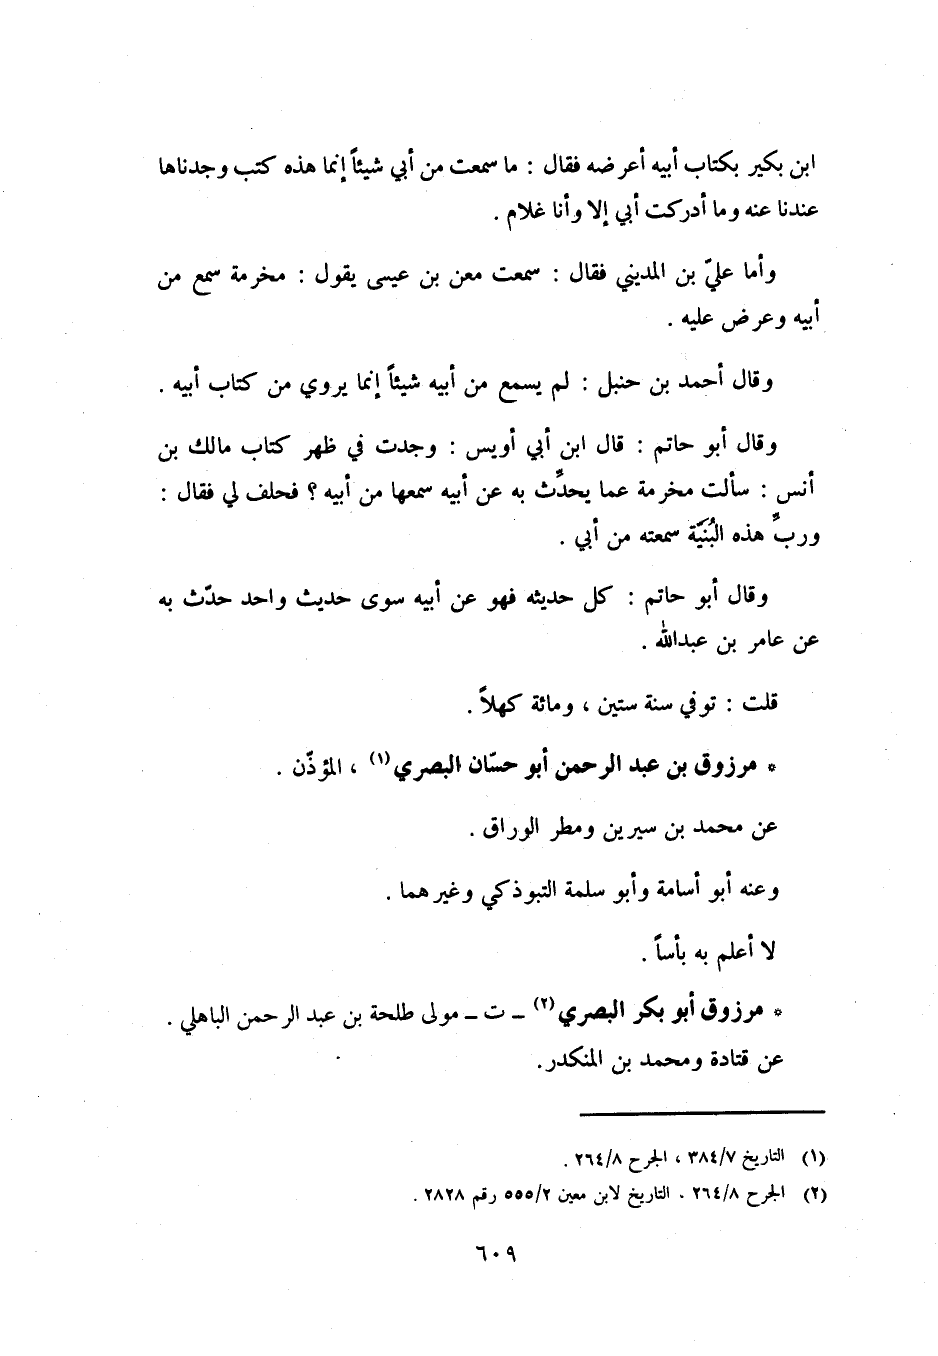 ابن بكير بكتاب أبيه أعرضه فقال : ما سمعت من أبي شيئاً إنما هذه كتب وجدناها
عندنا عنه وما أدركت أبي إلا وأنا غلام .
وأما عليّ بن المديني فقال : سمعت معن بن عيسى يقول : مخرمة سمع من
أبيه وعرض عليه .
وقال أحمد بن حنبل : لم يسمع من أبيه شيئاً إنما يروي من كتاب أبيه .
وقال أبو حاتم : قال ابن أبي أويس : وجدت في ظهر كتاب مالك بن
أنس : سألت مخرمة عما يحدِّث به عن أبيه سمعها من أبيه ؟ فحلف لي فقال :
وربِّ هذه البُنَيَّة سمعته من أبي .
وقال أبو حاتم : كل حديثه فهو عن أبيه سوى حديث واحد حدّث به
عن عامر بن عبدالله .
قلت : توفي سنة ستين ، ومائة كهلاً .
* مرزوق بن عبد الرحمن أبو حسّان البصري(١) ، المؤذّن .
عن محمد بن سيرين ومطر الوراق .
وعنه أبو أسامة وأبو سلمة التبوذكي وغيرهما .
لا أعلم به بأساً .
* مرزوق أبو بكر البصري(٢) ـ ت ـ مولى طلحة بن عبد الرحمن الباهلي .
عن قتادة ومحمد بن المنكدر.
(١) التاريخ ٣٨٤/٧ ، الجرح ٢٦٤/٨ .
(٢) الجرح ٢٦٤/٨ . التاريخ لابن معين ٥٥٥/٢ رقم ٢٨٢٨ .
٦٠٩